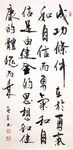 成功條件在於勇氣
和自信而勇氣和自
信是由健全的思想和健
康的體魄而來